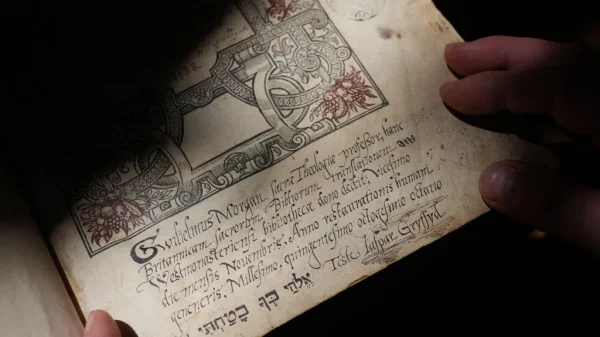 Gwilielmus Morgan, sacræ Theologiæ professor, hanc
Britannicam sacrorum Bibliorum translationem
Westmonasteriensi bibliothecæ dono dedit, vicesimo
die mensis Novembris. Anno restaurationis humani
generis. Millesimo, quingentesimo octogesimo octavo
Teste Iaspar